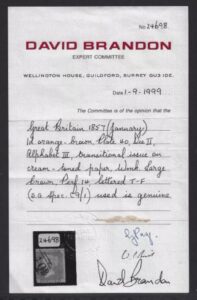 No 24698
DAVID BRANDON
EXPERT COMMITTEE
WELLINGTON HOUSE, GUILDFORD, SURREY GU3 1DE.
Date 1-9-1999
The Committee is of the opinion that the
Great Britain 1857 (January)
1d orange-brown, Plate 40, Die II,
Alphabet III, transitional issue on
cream-toned paper, Wmk. Large
Crown, Perf 14, lettered T-F
used is genuine
24698
David Brandon